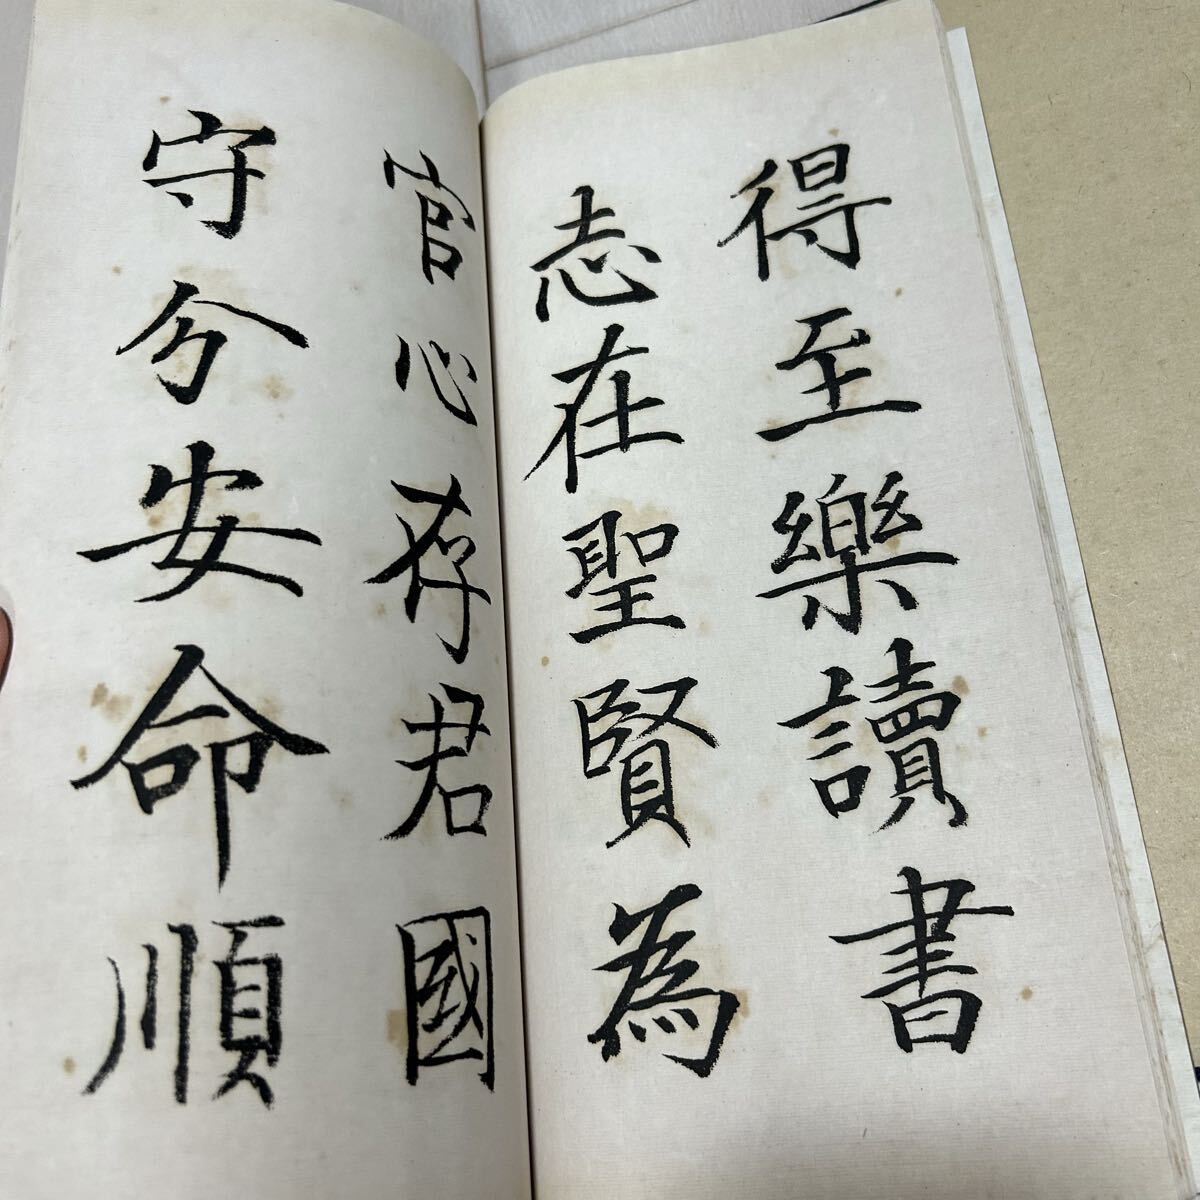 得至樂讀書
志在聖賢為
官心存君國
守分安命順